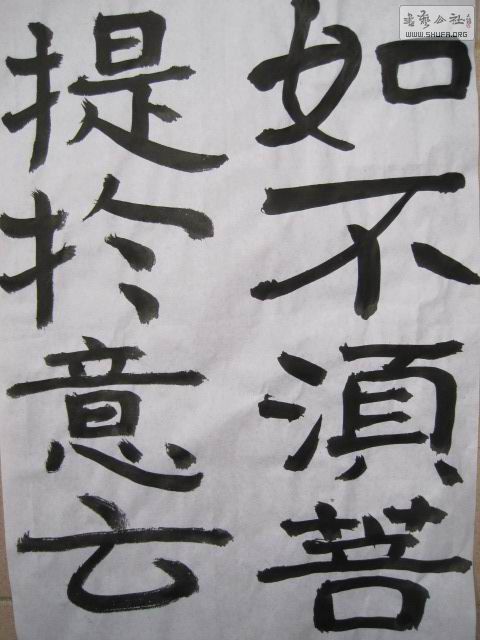 如不湏菩
提扵意云
書藝公社
WWW.SHUFA.ORG